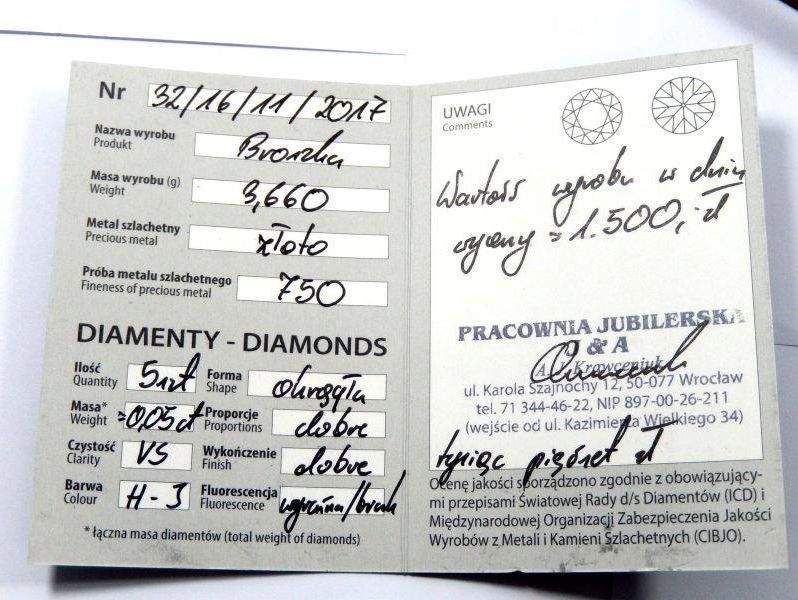 Nr 32/16/11/2017
Nazwa wyrobu
Produkt
Broszka
Masa wyrobu (g)
Weight
3,660
Metal szlachetny
Precious metal
złoto
Próba metalu szlachetnego
Fineness of precious metal
750
DIAMENTY - DIAMONDS
Ilość
Quantity
5szt
Forma
Shape
okrągła
Masa*
Weight
≈0,05ct
Proporcje
Proportions
dobre
Czystość
Clarity
VS
Wykończenie
Finish
dobre
Barwa
Colour
H-J
Fluorescencja
Fluorescence
/brak
* łączna masa diamentów (total weight of diamonds)
UWAGI
Comments
Wartość wyrobu w dniu
wyceny ≈ 1.500,- zł
PRACOWNIA JUBILERSKA
& A
Krawczeniuk
ul. Karola Szajnochy 12, 50-077 Wrocław
tel. 71 344-46-22, NIP 897-00-26-211
(wejście od ul. Kazimierza Wielkiego 34)
tysiąc pięćset zł
Ocenę jakości sporządzono zgodnie z obowiązują-
mi przepisami Światowej Rady d/s Diamentów (ICD) i
Międzynarodowej Organizacji Zabezpieczenia Jakości
Wyrobów z Metali i Kamieni Szlachetnych (CIBJO).